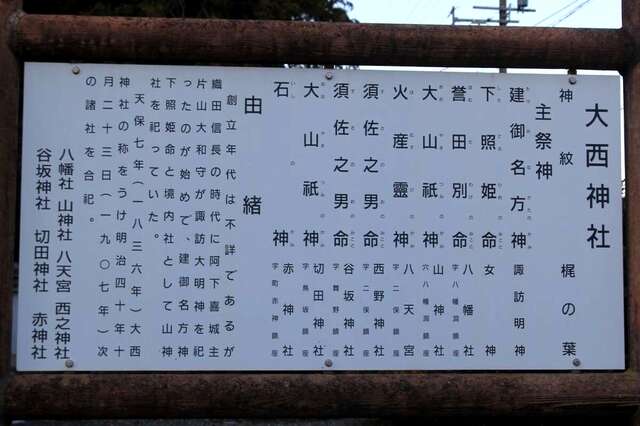 大西神社
神紋 梶の葉
主祭神
建御名方神 諏訪明神
下照姫命 女神
誉田別命 八幡社 字八幡洞鎮座
大山祇神 山神社 穴八幡洞鎮座
火産霊神 八天宮 字二保鎮座
須佐之男命 西野神社 字二保鎮座
須佐之男命 谷坂神社 字舞野鎮座
大山祇神 切田神社 字鳥坂鎮座
石神 赤神社 字町赤神鎮座
由緒
創立年代は不詳であるが
織田信長の時代に阿下喜城主
片山大和守が諏訪大明神を祀
ったのが始めで、建御名方神
下照姫命と境内社として山神
社を祀っていた。
天保七年(一八三六年)大西
神社の称をうけ明治四十年十
月二十三日(一九〇七年)次
の諸社を合祀。
八幡社 山神社 八天宮 西之神社
谷坂神社 切田神社 赤神社